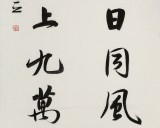 日同風
上九萬